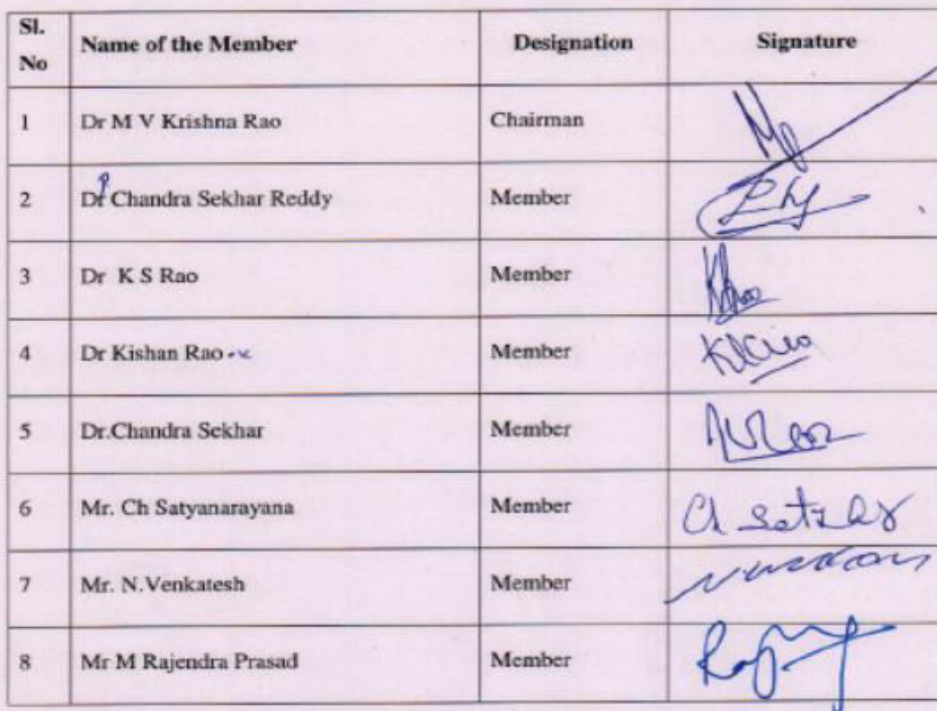 Sl. No Name of the Member Designation Signature
1 Dr M V Krishna Rao Chairman
2 Dr P Chandra Sekhar Reddy Member
3 Dr K S Rao Member
4 Dr Kishan Rao Member
5 Dr.Chandra Sekhar Member
6 Mr. Ch Satyanarayana Member
7 Mr. N.Venkatesh Member
8 Mr M Rajendra Prasad Member